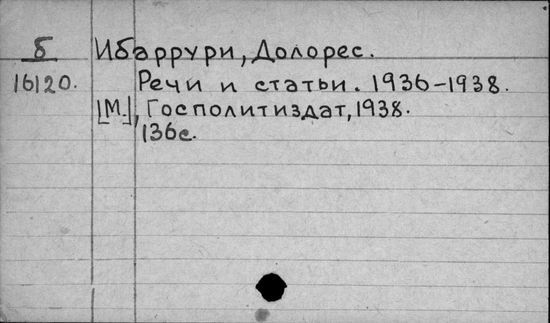 Б Ибаррури, Долорес.
16120. Речи и статьи. 1936-1938.
[М.], Госполитиздат, 1938.
136с.